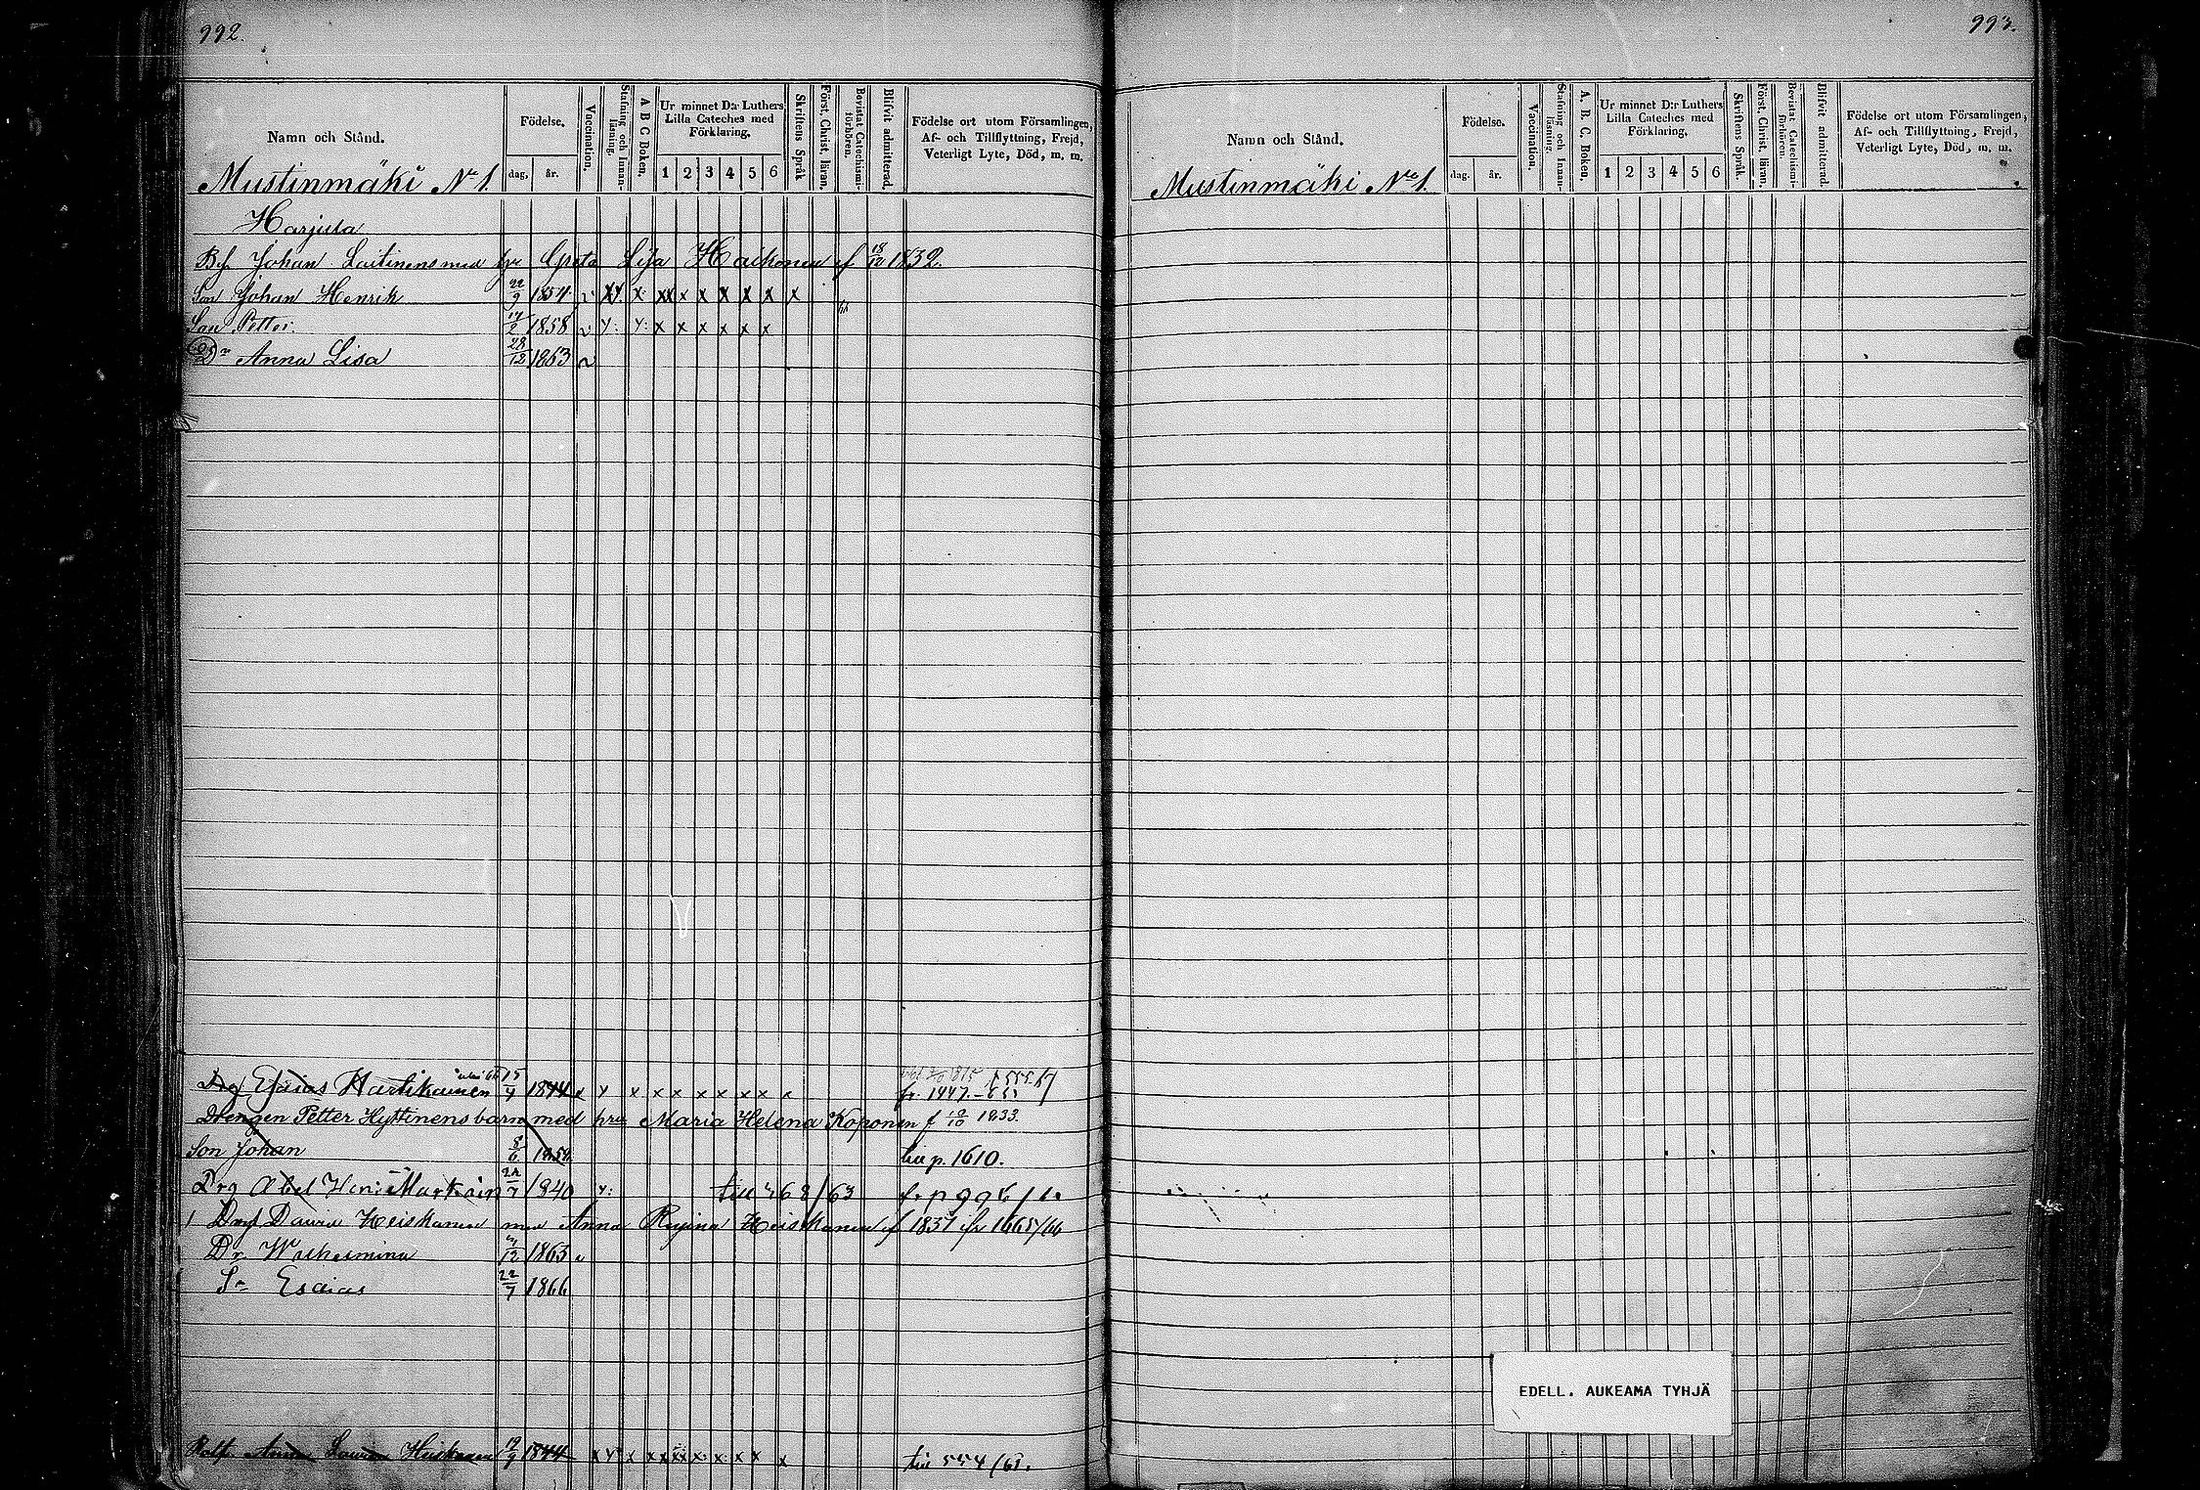 992.
Namn och Stånd.
Födelse.
dag, år.
Vaccination.
Stafning och Innan-läsning.
A B C Boken.
Ur minnet D:r Luthers Lilla Cateches med Förklaring.
1 2 3 4 5 6
Skriftens Språk
Först. Christ. läran.
Bevistat Catechismi-förhören.
Blifvit admitterad.
Födelse ort utom Församlingen,
Af- och Tillflyttning, Frejd,
Veterligt Lyte, Död, m. m.
Mustinmäki No 1.
Harjula
Johan Laitinens med Greta Lisa f 18/10 1832.
Son Johan Henrik 22/9 1854 v x x x x x x x x
Son Petter 17/2 1858 v x x x x x x
Dr Anna Lisa 28/12 1863 v
Drg Esaias Hartikainen 15/4 1844 x x x x x x x x fr. 1447.
Petter Hyttinens barn med hru Maria Helena Koponen f 10/10 1833.
Son Johan 8/6 till p. 1610.
Drg Abel 1840 till 468/63
David Heiskanen med Anna Regina Heiskanen f 1837 fr 1665/66
Dr Wilhelmina 1863
Sn Esaias 22/7 1866
19/9 1844 x x x x x x x x till 554/65.
993.
Namn och Stånd.
Födelse.
dag. år.
Vaccination.
Stafning och Innan-läsning.
A. B. C. Boken.
Ur minnet D:r Luthers Lilla Cateches med Förklaring.
1 2 3 4 5 6
Skriftens Språk.
Först. Christ. läran.
Bevistat Catechismi-förhören.
Blifvit admitterad.
Födelse ort utom Församlingen,
Af- och Tillflyttning, Frejd,
Veterligt Lyte, Död, m. m.
Mustinmäki No 1.
EDELL. AUKEAMA TYHJÄ